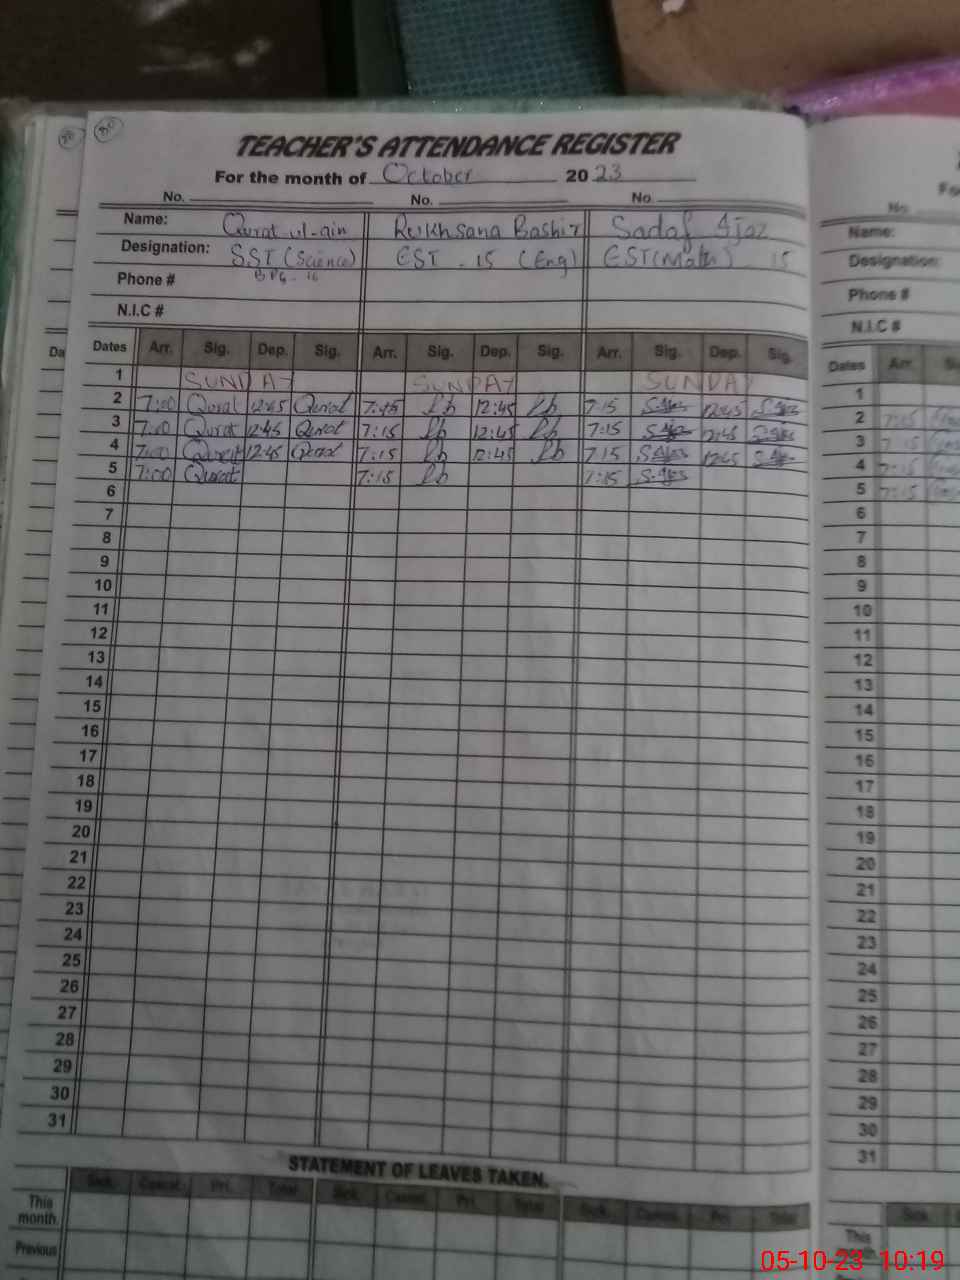 TEACHER'S ATTENDANCE REGISTER
For the month of October 2023
No. No. No.
Name: Qurat-ul-ain Rukhsana Bashir Sadaf Ajaz
Designation: SST (Science) EST - 15 (Eng) EST (Math) 15
Phone #
N.I.C #
Dates Arr. Sig. Dep. Sig. Arr. Sig. Dep. Sig. Arr. Sig. Dep. Sig.
1 SUNDAY SUNDAY SUNDAY
2 7:00 Qurat 12:45 Qurat 12:45 7:15 12:45
3 7:00 Qurat 12:45 Qurat 7:15 12:45 7:15 12:45
4 7:00 Qurat 12:45 Qurat 7:15 12:45 7:15 12:45
5 7:00 Qurat 7:15 7:15
6
7
8
9
10
11
12
13
14
15
16
17
18
19
20
21
22
23
24
25
26
27
28
29
30
31
STATEMENT OF LEAVES TAKEN.
Sick. Casual. Pri. Total Sick. Casual. Pri. Total Sick. Casual. Pri. Total
This month.
Previous
Name:
Designation:
Phone #
N.I.C #
Dates Arr.
1
2 7:15
3 7:15
4 7:15
5 7:15
6
7
8
9
10
11
12
13
14
15
16
17
18
19
20
21
22
23
24
25
26
27
28
29
30
31
Sick.
This month.
05-10-23 10:19